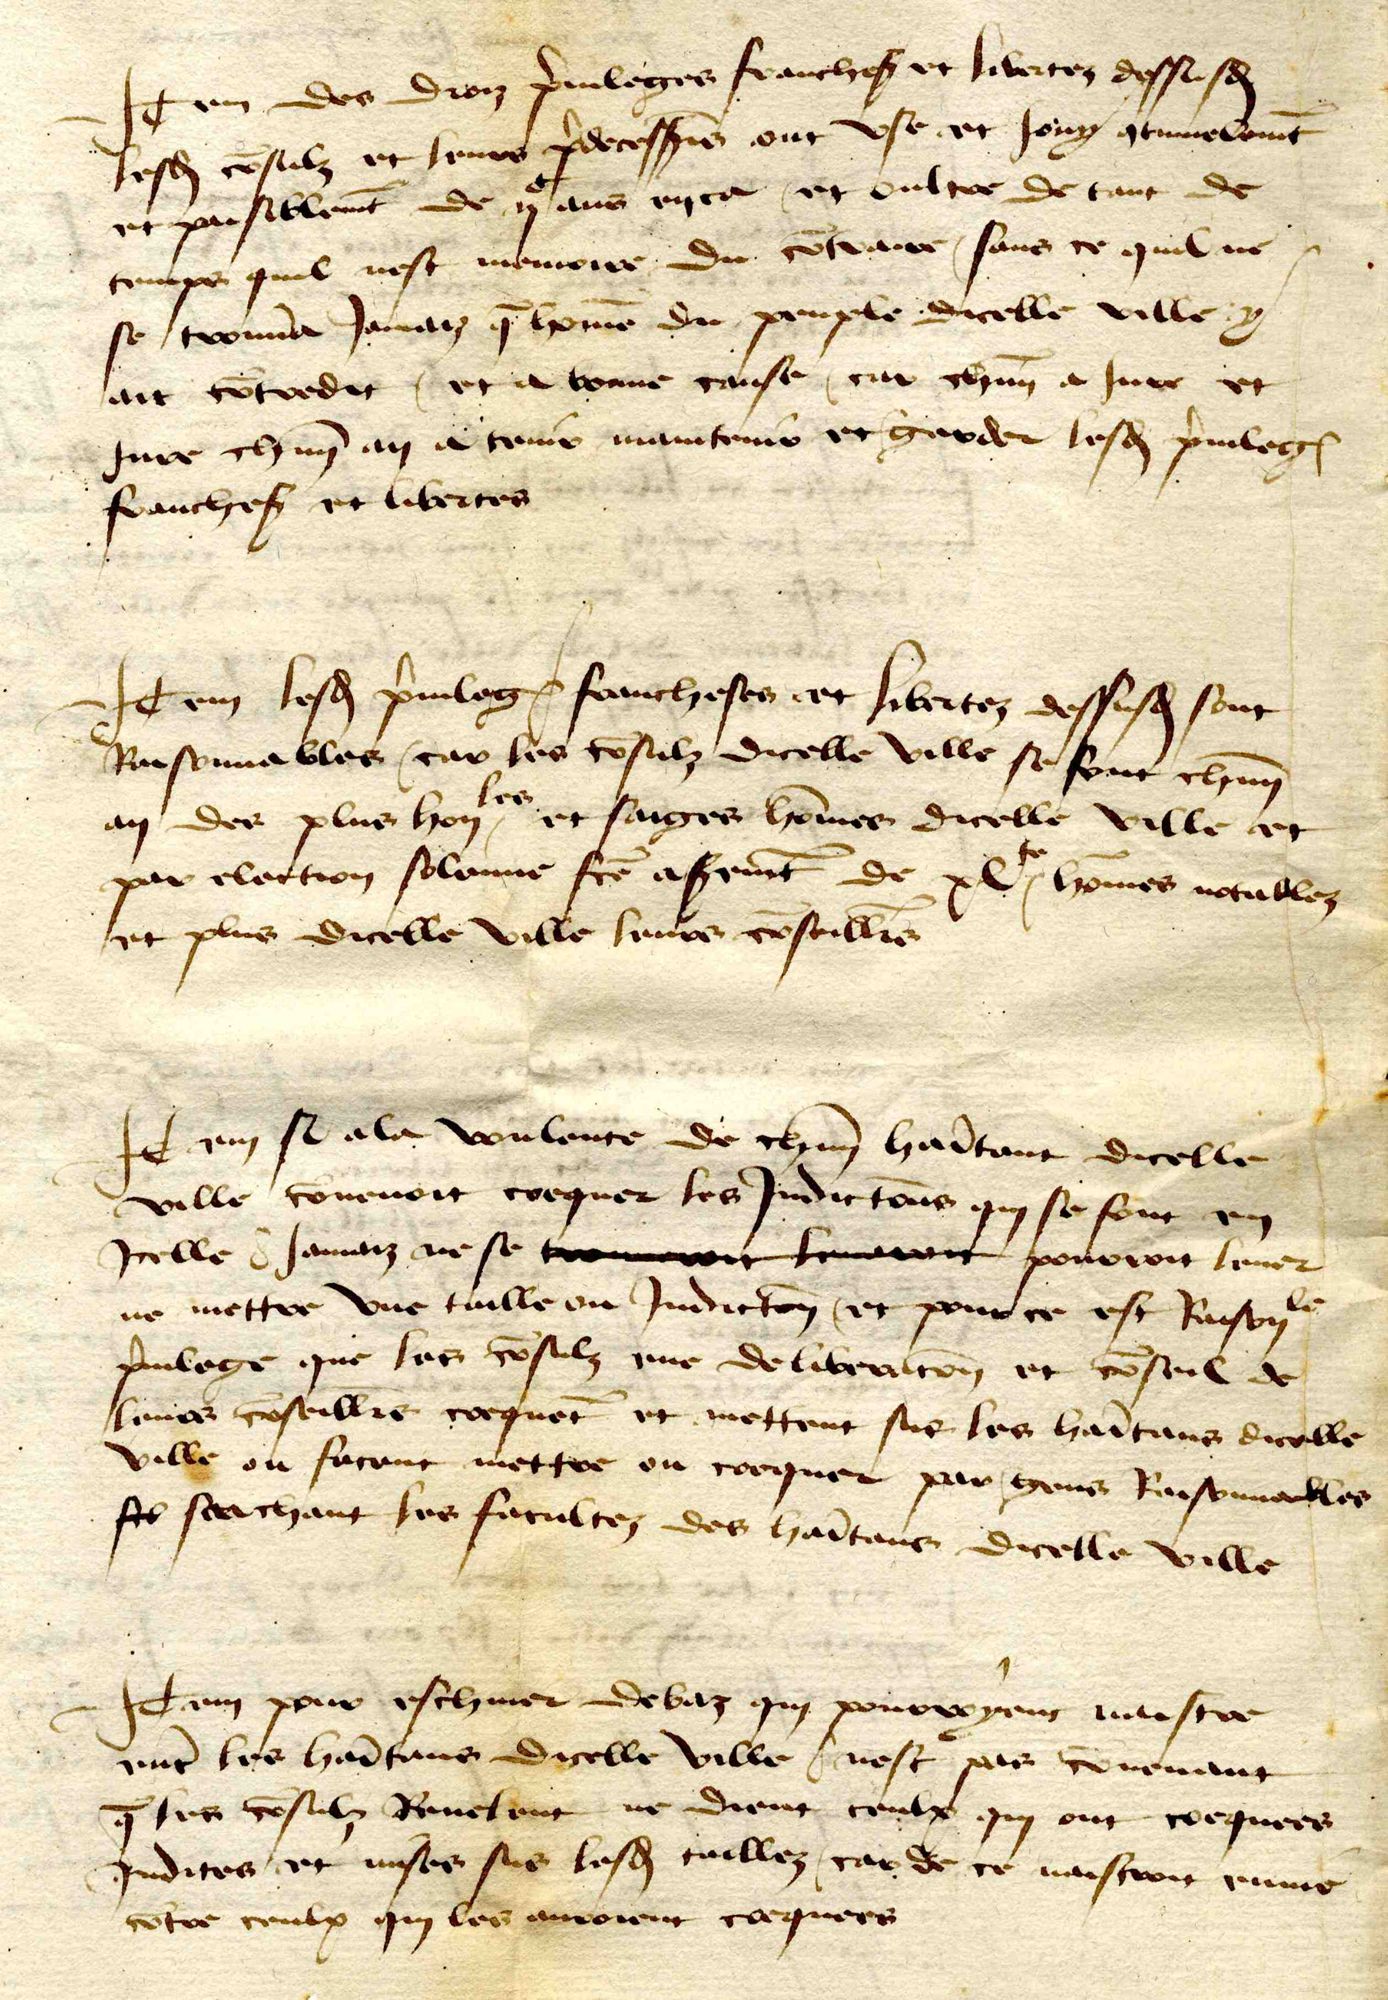 Item des droiz p'vileges franches et libertez dessusd
lesd cosulz et leurs p'decesseurs ont use et Jouy 9tinuelemt
et paisiblemt de ans enca / et oultre de tant de
temps quil nest memoire du cotraire / sans ce quil ne
se trouvera Jamaiz q home du peuple dicelle ville y
ait cotredit / et a bonne cause / car chun a Jure et
Jure chun an a tenir maintenir et garder lesd p'vileg
franches et libertes
Item lesd p'vileg francheses et libertez dessusd sont
Raisonnables / car les cosulz dicelle ville se font chun
an des plus honles et saiges homes dicelle ville et
par election solenne fce de xlte homes notablez
et plus dicelle ville leurs coseillrs
Item si a la voulente de chun haitant dicelle
ville covenoit coequer les Indictons qui se font en
Icelle Jamaiz ne se pourroit lever
ne mettre une taille ou Indicton / et pour ce est Raisonle
p'vilege que les cosulz eue deliveracon et coseil de
leurs coseillrs coequet et mettent sus les haitans dicelle
ville ou facent mettre ou coequer par gens Raisonnables
saichant les facultez des haitans dicelle ville
Item pour eschiver debaz qui pourroyent naistre
ent les haitans dicelle ville / nest pas covenant
q les cosulz Revelent ne dient ceulx qui ont coequees
Indites et mises sus lesd taillez / car de ce naistroit
cotre ceulx qui les auroient coequees